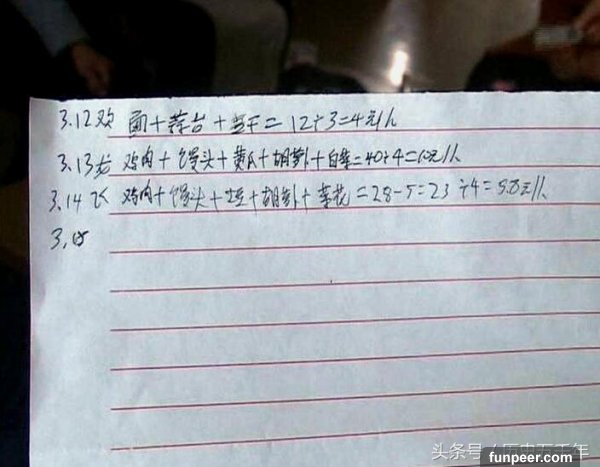 3.12欢 面+蒜台+豆干=12÷3=4元/人
3.13龙 鸡肉+馒头+黄瓜+胡萝卜+白菜=40÷4=10元/人
3.14飞 鸡肉+馒头+土豆+胡萝卜+菜花=28-5=23÷4=5.8元/人
3.15
头条号/历史五千年
funpeer.com